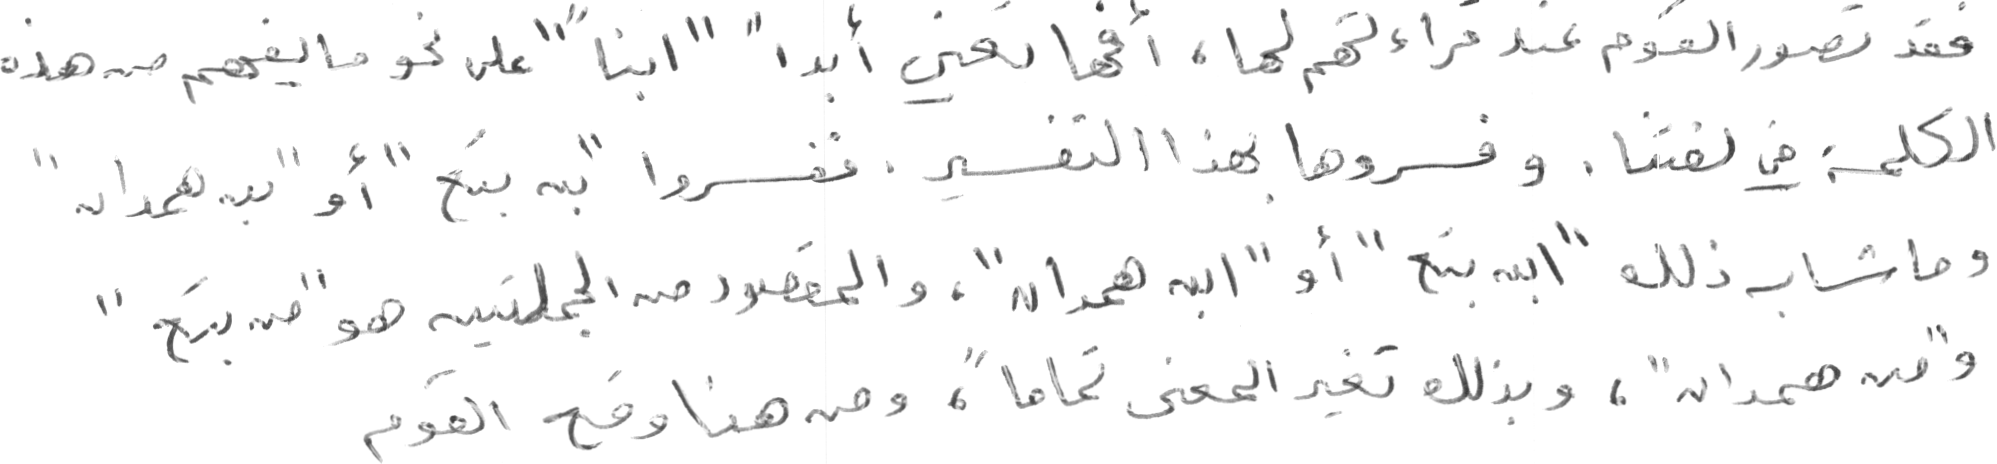 فقد تصور القوم عند قراءتهم لها، أنها تعني أبدا" "ابنا" "على نحو ما يفهم من هذه
الكلمة في لغتنا. وفسروها بهذا التفسير. ففسروا "بن بتع" أو "بن همدان"
وما شابه ذلك "ابن بتع" أو "ابن همدان"، والمقصود من الجملتين هو "من بتع"
و"من همدان"، وبذلك تغير المعنى تماما"، ومن هنا وقع القوم